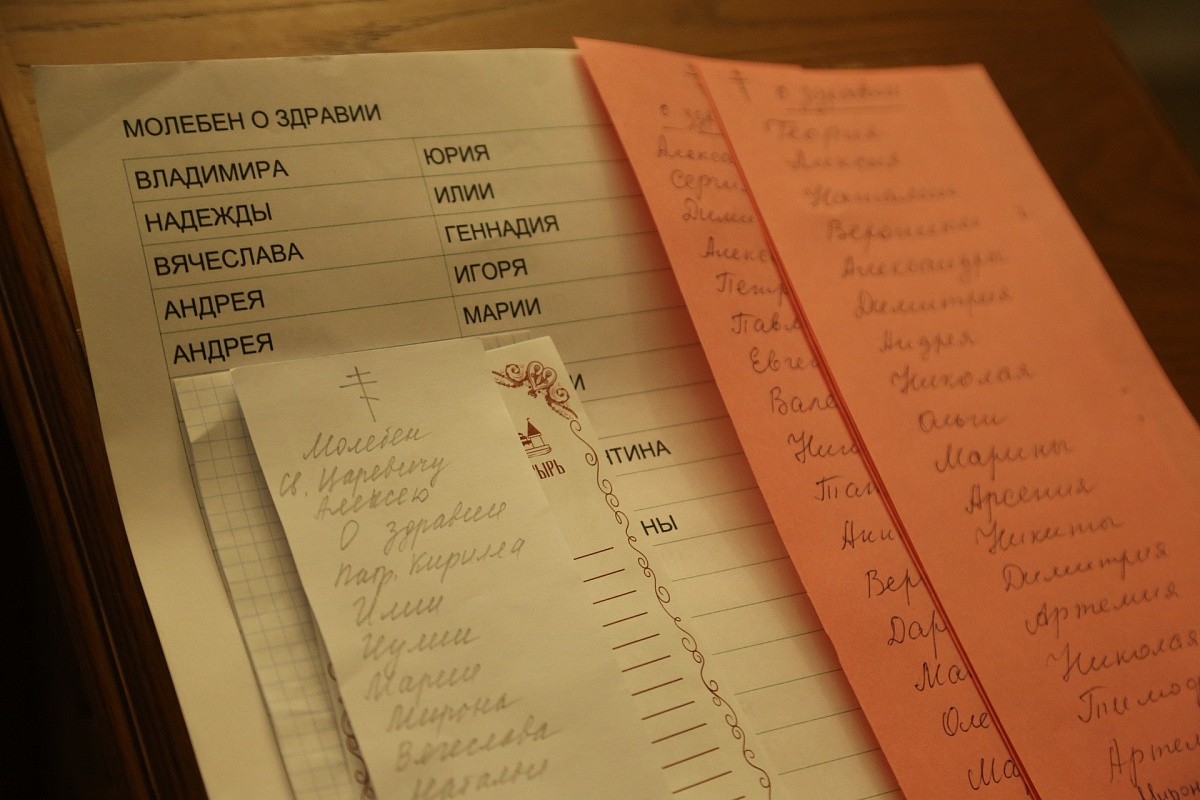 МОЛЕБЕН О ЗДРАВИИ
ВЛАДИМИРА
НАДЕЖДЫ
ВЯЧЕСЛАВА
АНДРЕЯ
АНДРЕЯ
ЮРИЯ
ИЛИИ
ГЕННАДИЯ
ИГОРЯ
МАРИИ
И
ТИНА
НЫ
ЫРЬ
Молебен
св. Царевичу
Алексею
О здравии
Патр. Кирилла
Илии
Марии
Мирона
Вячеслава
Наталии
О зд
Алекса
Серги
Дими
Алекс
Петр
Павл
Евге
Вале
Вер
Дар
Ма
Оле
Ма
О здравии
Георгия
Алексия
Наталии
Вероники
Александра
Димитрия
Андрея
Николая
Ольги
Марины
Арсения
Никиты
Димитрия
Артемия
Николая
Тимоф
Артем
Мирон